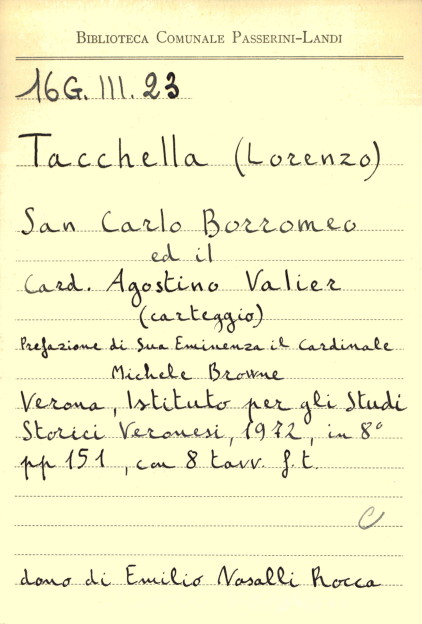 BIBLIOTECA COMUNALE PASSERINI-LANDI
16G. III. 23
Tacchella (Lorenzo)
San Carlo Borromeo
ed il
Card. Agostino Valier
(carteggio)
Prefazione di Sua Eminenza il Cardinale
Michele Browne
Verona, Istituto per gli Studi
Storici Veronesi, 1972, in 8°
pp 151, con 8 tavv. f.t.
C
dono di Emilio Nasalli Rocca